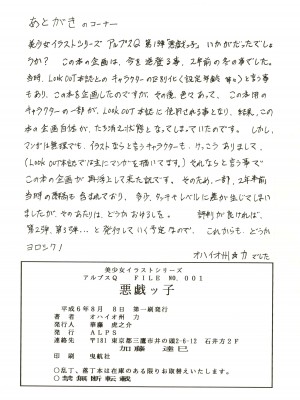 あとがきのコーナー
美少女イラストシリーズ アルプスQ 第1弾「悪戯ッ子」いかがだったでしょ
うか? この本の企画は、今を遡る事、2年前の冬の事でした。
当時、LOOK OUT本誌とのキャラクターの区別化(設定年齢 等々)と言う事
もあり、この本を企画したのですが、その後、色々あって、この本用の
キャラクターの一部が、LOOK OUT本誌に使用される事となり、結果、この
本の企画自体が、たち消え状態となってしまっていたのです。しかし、
マンガは無理でも、イラストならと言うキャラクターも、けっこうありまして、
(LOOK OUT本誌では主にマンガを描いてます。)それならと言う事で
この本の企画が再浮上して来た訳です。そのため、一部、2年半前
当時の原稿も含まれており、多少、タッチやレベルに差が生じてしまい
ましたが、そのあたりは、どうかお許しを。 評判が良ければ、
第2弾、第3弾…と発行していく予定なので、これからも、どうか
ヨロシク!
オハイオ州☆力でした
美少女イラストシリーズ
アルプスQ FILE NO.001
悪戯ッ子
平成6年8月 8日 第一刷発行
著者 オハイオ州 力
発行人 華藤 虎之介
発行 ALPS
連絡先 〒181 東京都三鷹市井の頭2-6-12 石井方2F
加藤 達巳
印刷 曳航社
○乱丁、落丁本は在庫のある限りお取替えいたします。
○禁無断転載